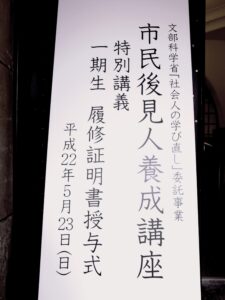 文部科学省「社会人の学び直し」委託事業
市民後見人養成講座
特別講義
一期生 履修証明書授与式
平成22年5月23日(日)